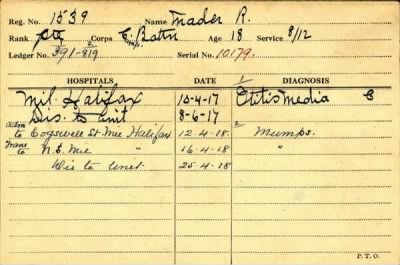 Reg. No. 1539 Name Mader R.
Rank Pte Corps C. Battn Age 18 Service 8/12
Ledger No. 391-819 Serial No. 10179.
HOSPITALS DATE DIAGNOSIS
Mil. Halifax 10-4-17 Otitis Media C
Dis. to unit 8-6-17
Adm to Cogswell St. Mil Halifax 12-4-18. 2 Mumps.
Trans to N.S. Mil " 16-4-18 "
Dis to Unit. 25-4-18
P. T. O.